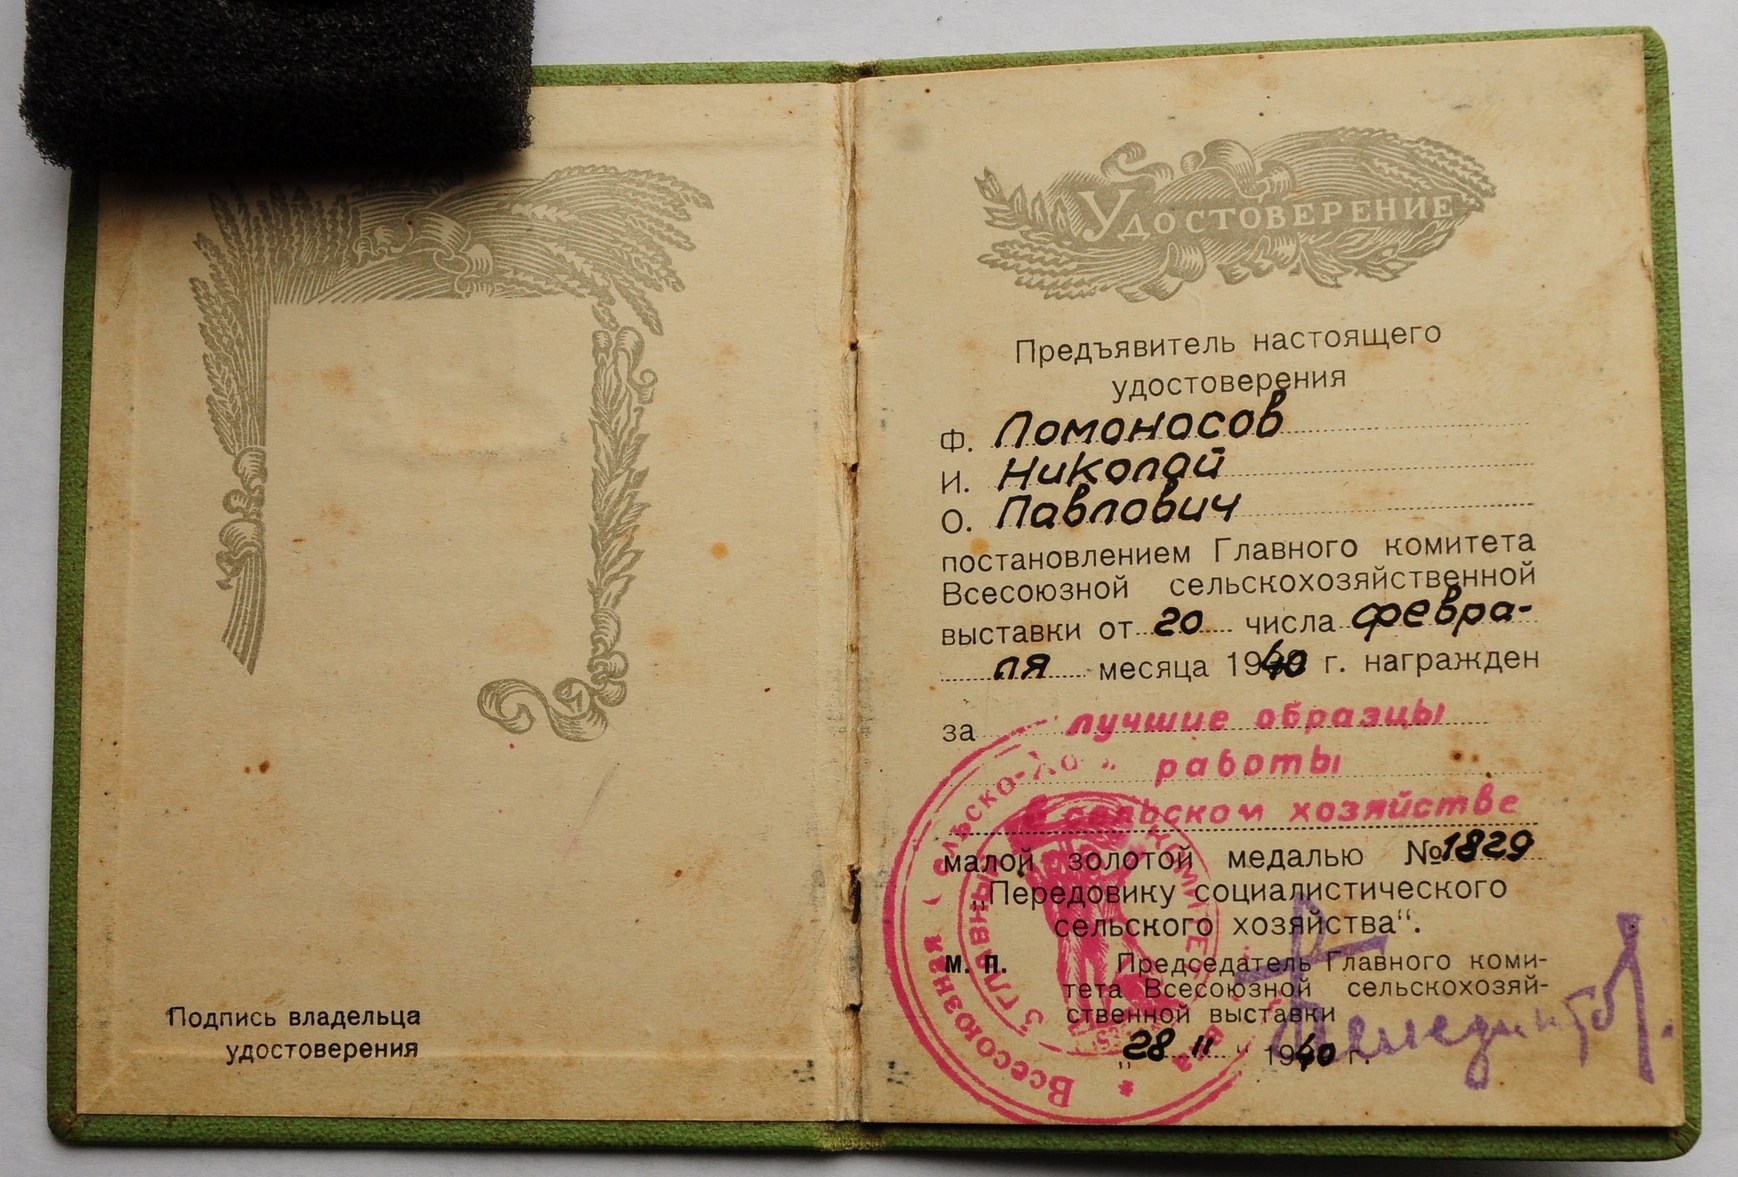 Подпись владельца
удостоверения
Удостоверение
Предъявитель настоящего
удостоверения
Ф. Ломоносов
И. Николай
О. Павлович
постановлением Главного комитета
Всесоюзной сельскохозяйственной
выставки от 20 числа февра-
ля месяца 1940 г. награжден
за лучшие образцы
работы
в сельском хозяйстве
малой золотой медалью №1829
„Передовику социалистического
сельского хозяйства“.
М. П. Председатель Главного коми-
тета Всесоюзной сельскохозяй-
ственной выставки
„28 II “ 1940 г.
Всесоюзная сельско-хо
Главный комитет